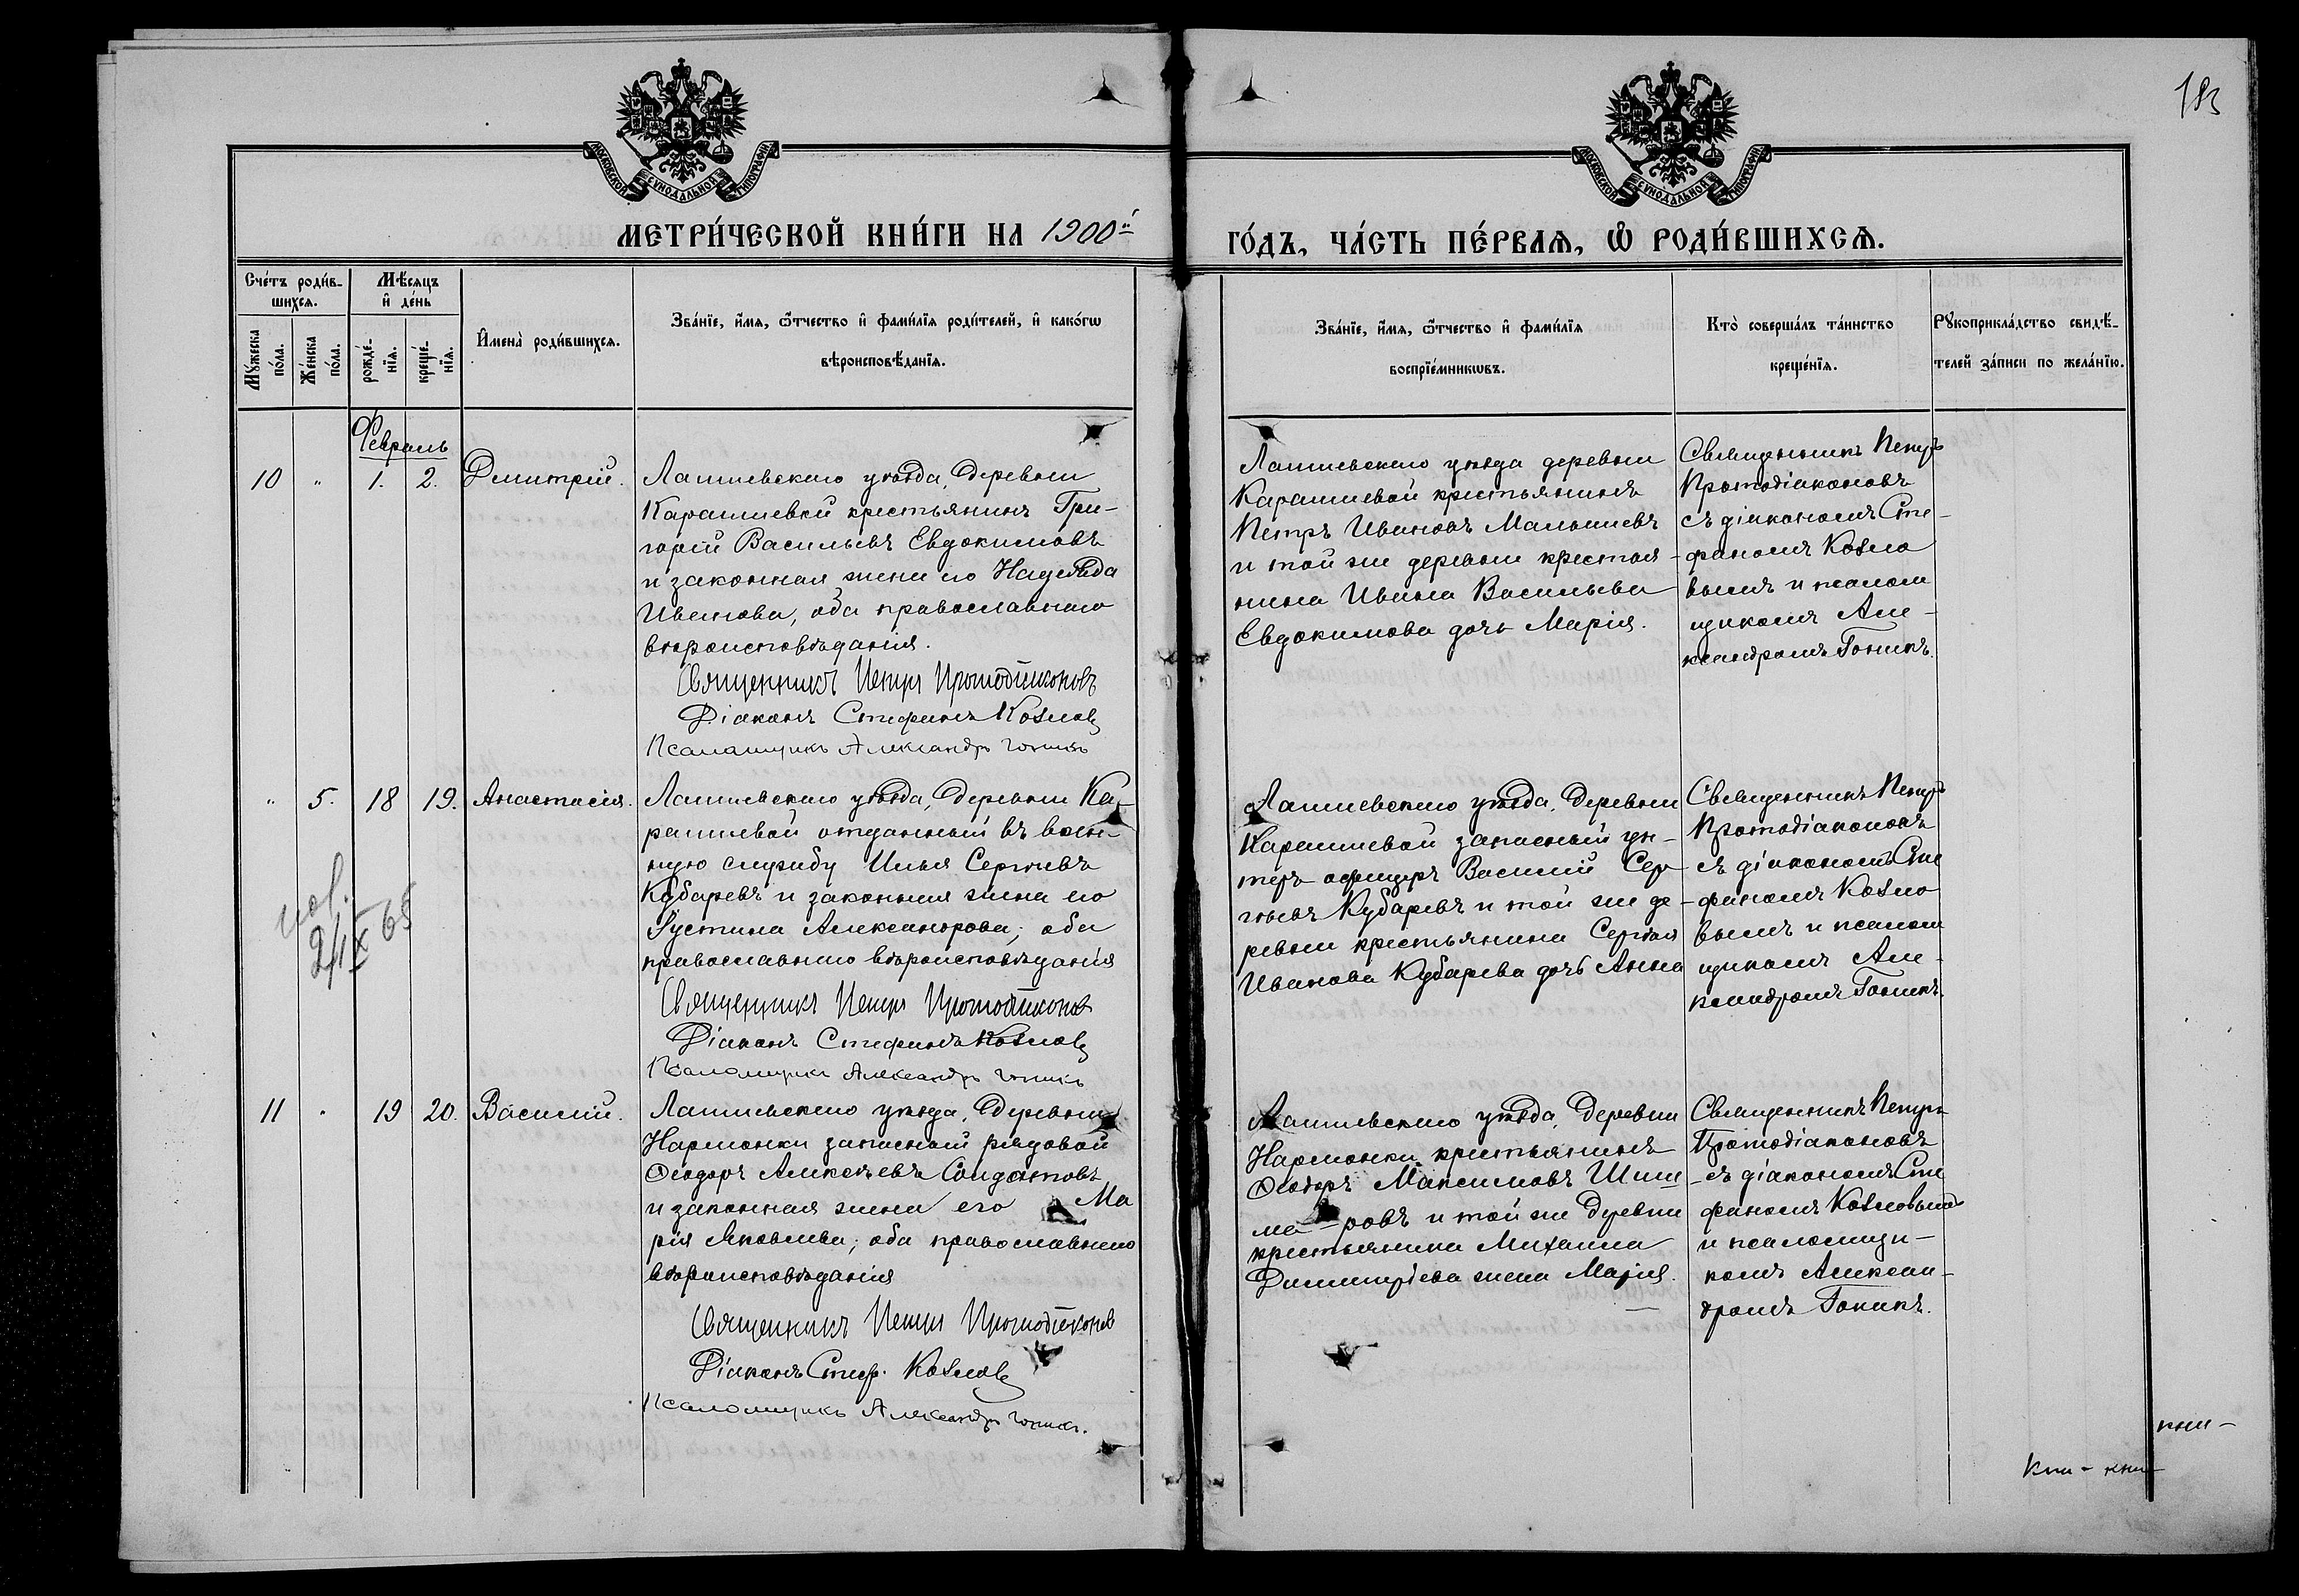 183
МОСКОВСКОЙ СѴНОДАЛЬНОЙ ТИПОГРАФІИ
МОСКОВСКОЙ СѴНОДАЛЬНОЙ ТИПОГРАФІИ
МЕТРИ́ЧЕСКОЙ КНИ́ГИ НА 1900й
ГО́ДЪ, ЧА́СТЬ ПЕ́РВАѦ, Ѽ РОДИ́ВШИХСѦ.
Сче́тъ роди́в-
шихсѧ.
Мѣ́сѧцъ
и҆ де́нь
Мꙋ́жеска
по́ла.
Же́нска
по́ла.
рожде́-
нїѧ.
креще́-
нїѧ.
И҆мена̀ роди́вшихсѧ.
Зва́нїе, и҆́мѧ, ѻ҆́тчество и҆ фами́лїѧ роди́телей, и҆ како́гѡ
вѣроисповѣ́данїѧ.
Зва́нїе, и҆́мѧ, ѻ҆́тчество и҆ фами́лїѧ
воспрїе́мникѡвъ.
Кто̀ соверша́лъ та́инство
креще́нїѧ.
Рꙋкоприкла́дство свидѣ́-
телей за́писи по жела́нїю.
Февраль
10 " 1. 2. Дмитрій.
Лаишевскаго уѣзда, деревни
Карашиевкй крестьянинъ Гри-
горій Васильевъ Евдокимовъ
и законная жена его Надежда
Иванова, оба православнаго
вѣроисповѣданія.
Священникъ Петръ Протодіаконовъ
Діаконъ Стефанъ Козловъ
Псаломщикъ Александръ Гоникъ
Лаишевскаго уѣзда деревни
Карашиевой крестьянинъ
Петръ Ивановъ Малышевъ
и той же деревни крестья-
нина Ивана Васильева
Евдокимова дочь Марія.
Священникъ Петръ
Протодіаконовъ
съ діакономъ Сте-
фаномъ Козло
вымъ и псалом
щикомъ Але-
ксандромъ Гоникъ.
" 5. 18 19. Анастасія.
Лаишевскаго уѣзда, деревни Ка-
рашиевой отданный въ воен-
ную службу Илья Сергѣевъ
Кубаревъ и законная жена его
Іустина Александрова; оба
православнаго вѣроисповѣданія
Священникъ Петръ Протодіаконовъ
Діаконъ Стефанъ Козловъ
Псаломщикъ Александръ Гоникъ
Лаишевскаго уѣзда, деревни
Карашиевой запасный ун-
теръ офицеръ Василій Сер
гѣевъ Кубаревъ и той же де-
ревни крестьянина Сергѣя
Иванова Кубарева дочь Анна
Священникъ Петръ
Протодіаконовъ
съ діакономъ Сте
фаномъ Козло
вымъ и псалом
щикомъ Але-
ксандромъ Гоникъ.
IX 65
11 " 19 20. Василій.
Лаишевскаго уѣзда, деревни
Нармонки запасной рядовой
Ѳеодоръ Алексѣевъ Солдатовъ
и законная жена его Ма
рія Яковлева; оба православнаго
вѣроисповѣданія
Священникъ Петръ Протодіаконовъ
Діаконъ Стеф. Козловъ
Псаломщикъ Александръ Гоникъ.
Лаишевскаго уѣзда, деревни
Нармонки крестьянинъ
Ѳеодоръ Максимовъ Шиш
ма-ровъ и той же деревни
крестьянина Михаила
Димитріева жена Марія.
Священникъ Петръ
Протодіаконовъ
съ діакономъ Сте
фаномъ Козловымъ
и псаломщи-
комъ Алексан-
дромъ Гоникъ.
кни-
Кни- кни-